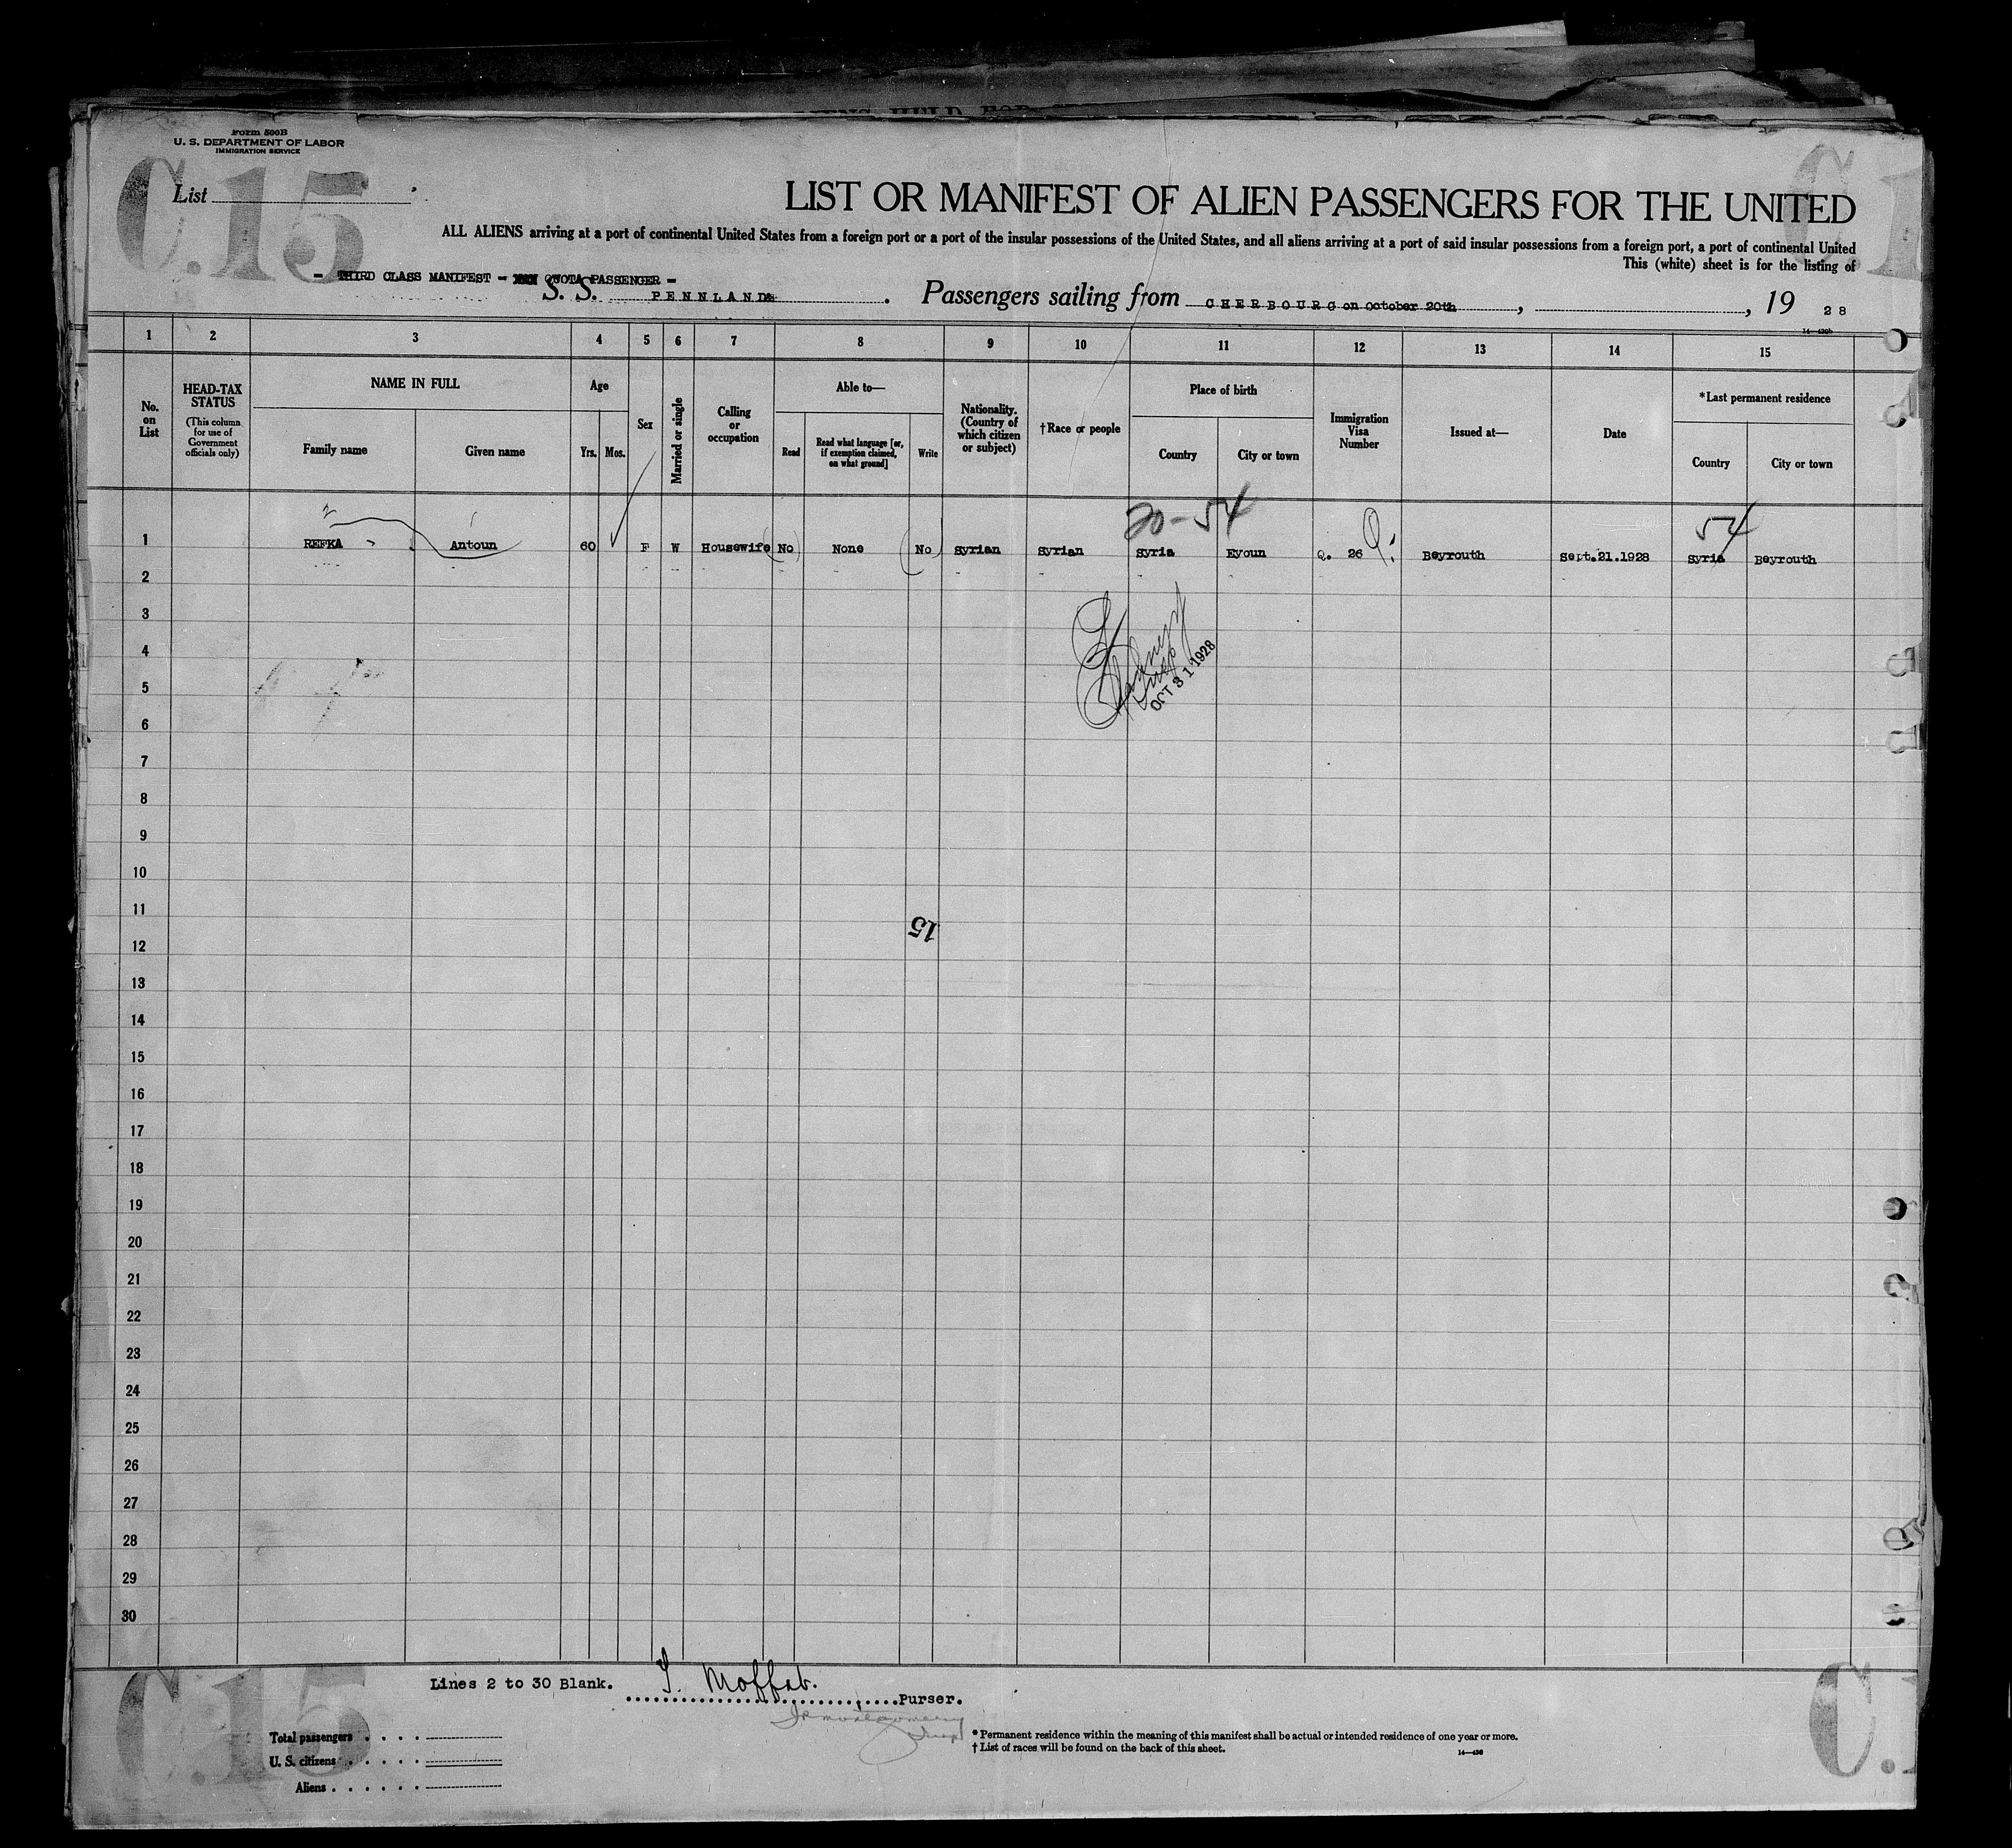 Form 500B
U. S. DEPARTMENT OF LABOR
IMMIGRATION SERVICE
C.15
List
LIST OR MANIFEST OF ALIEN PASSENGERS FOR THE UNITED
ALL ALIENS arriving at a port of continental United States from a foreign port or a port of the insular possessions of the United States, and all aliens arriving at a port of said insular possessions from a foreign port, a port of continental United
This (white) sheet is for the listing of
- THIRD CLASS MANIFEST - QUOTA PASSENGER -
S. S. PENNLAND. Passengers sailing from CHERBOURG on October 20th, , 19 28
14—430b
1 2 3 4 5 6 7 8 9 10 11 12 13 14 15
No. on List
HEAD-TAX STATUS
(This column for use of Government officials only)
NAME IN FULL
Family name Given name
Age
Yrs. Mos.
Sex
Married or single
Calling or occupation
Able to—
Read
Read what language [or, if exemption claimed, on what ground]
Write
Nationality. (Country of which citizen or subject)
†Race or people
Place of birth
Country City or town
Immigration Visa Number
Issued at—
Date
*Last permanent residence
Country City or town
20-54 54
1 REFKA Antoun 60 F W Housewife No None No Syrian Syrian Syria Eyoun Q. 26 Q. Beyrouth Sept.21.1928 Syria Beyrouth
2
3
4
OCT 31 1928
5
6
7
8
9
10
11
15
12
13
14
15
16
17
18
19
20
21
22
23
24
25
26
27
28
29
30
C.15
C.
Lines 2 to 30 Blank. Moffat. Purser.
Total passengers
U. S. citizens
Aliens
* Permanent residence within the meaning of this manifest shall be actual or intended residence of one year or more.
† List of races will be found on the back of this sheet.
14—430